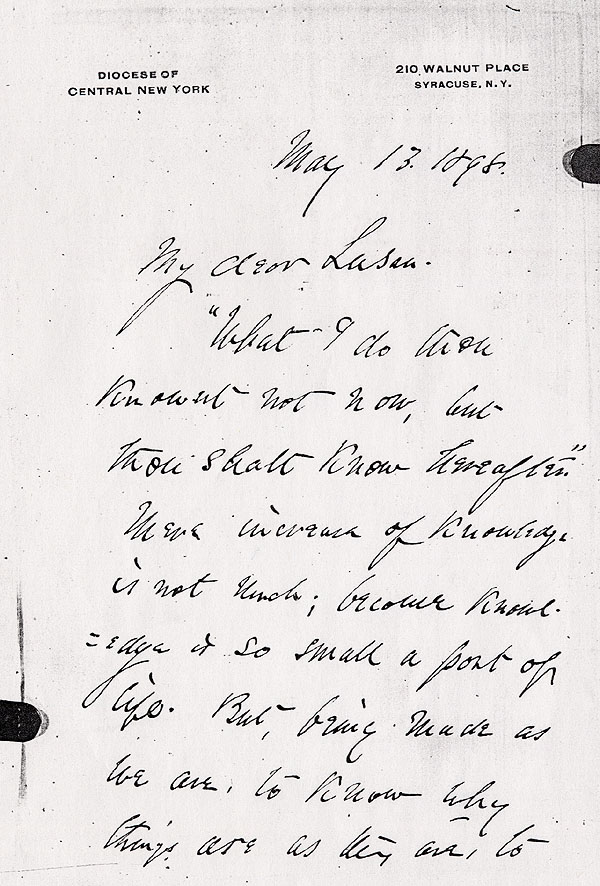 DIOCESE OF
CENTRAL NEW YORK
210 WALNUT PLACE
SYRACUSE, N.Y.
May 13. 1898.
My dear Susan.
"What I do thou
knowest not now, but
thou shalt know hereafter."
Mere increase of knowledge
is not much; because knowl-
=edge is so small a part of
life. But, being made as
we are, to know why
things are as they are, to